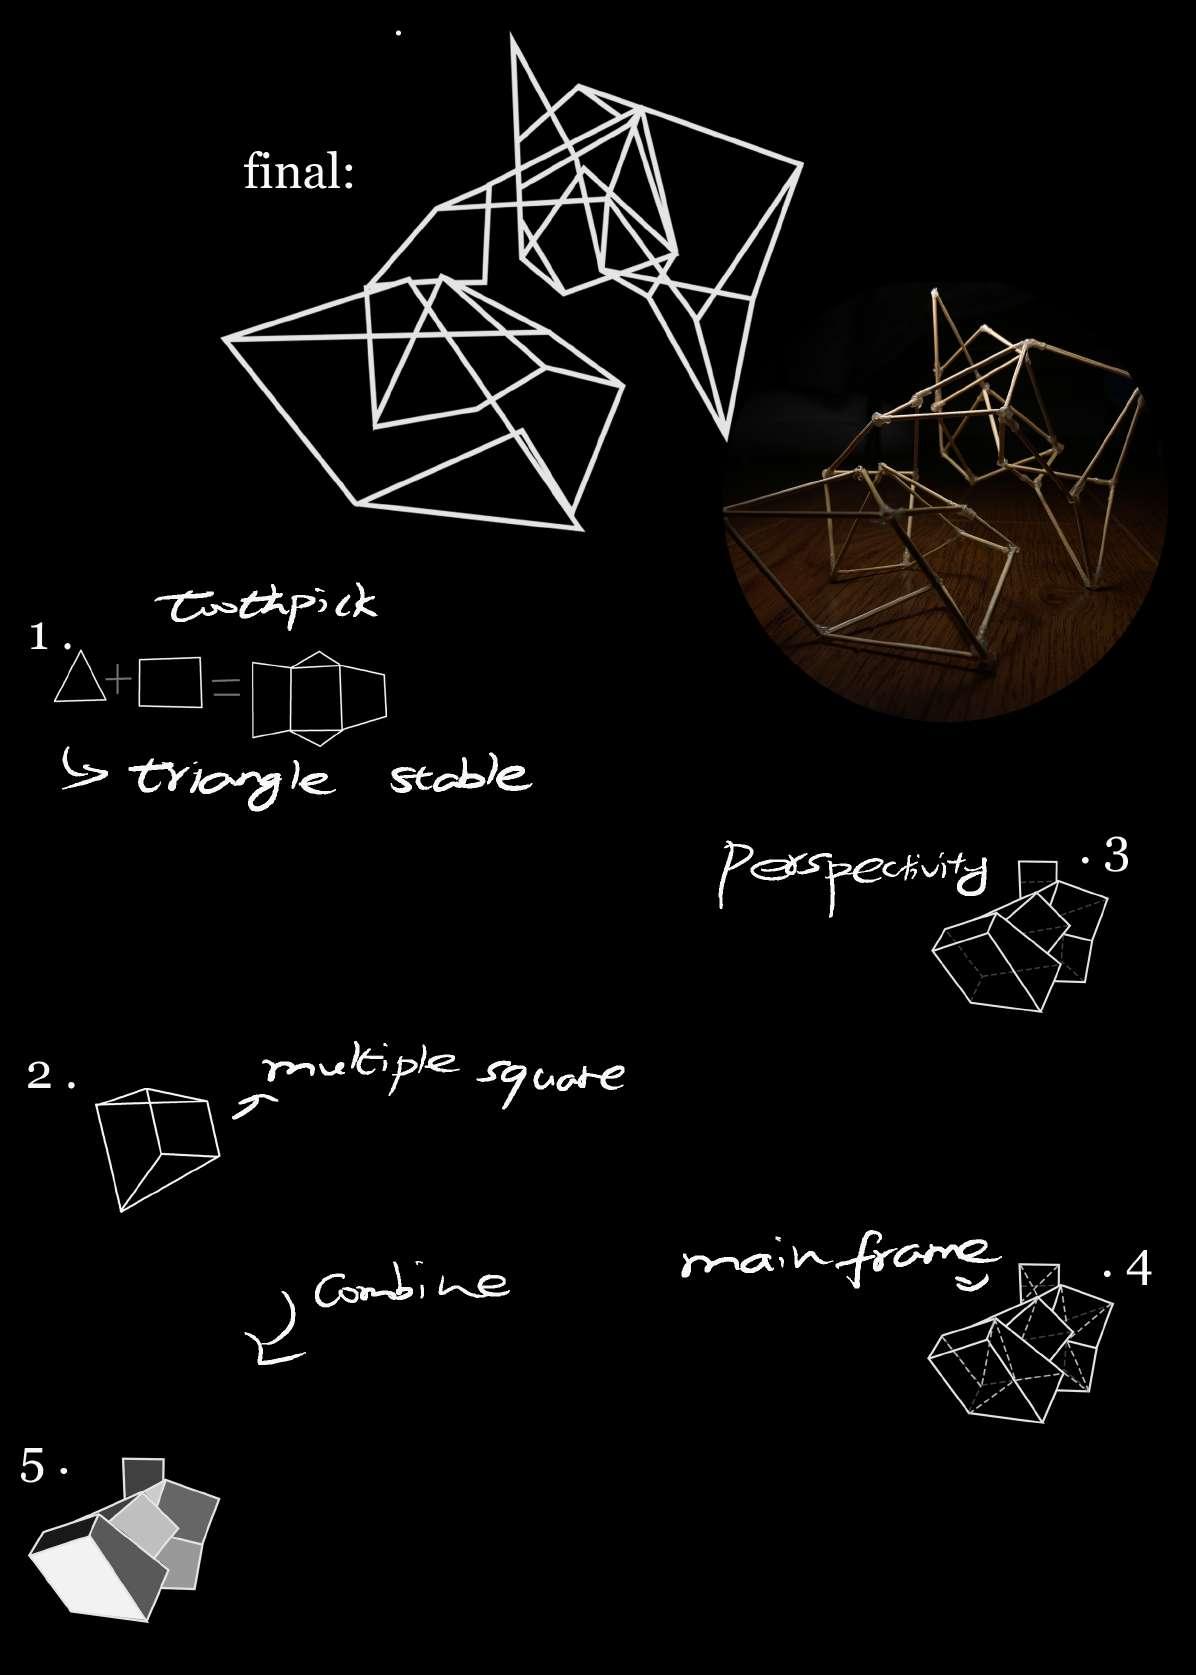 final:
toothpick
1.
triangle stable
Perspectivity
.3
2.
multiple square
main frame
.4
Combine
5.